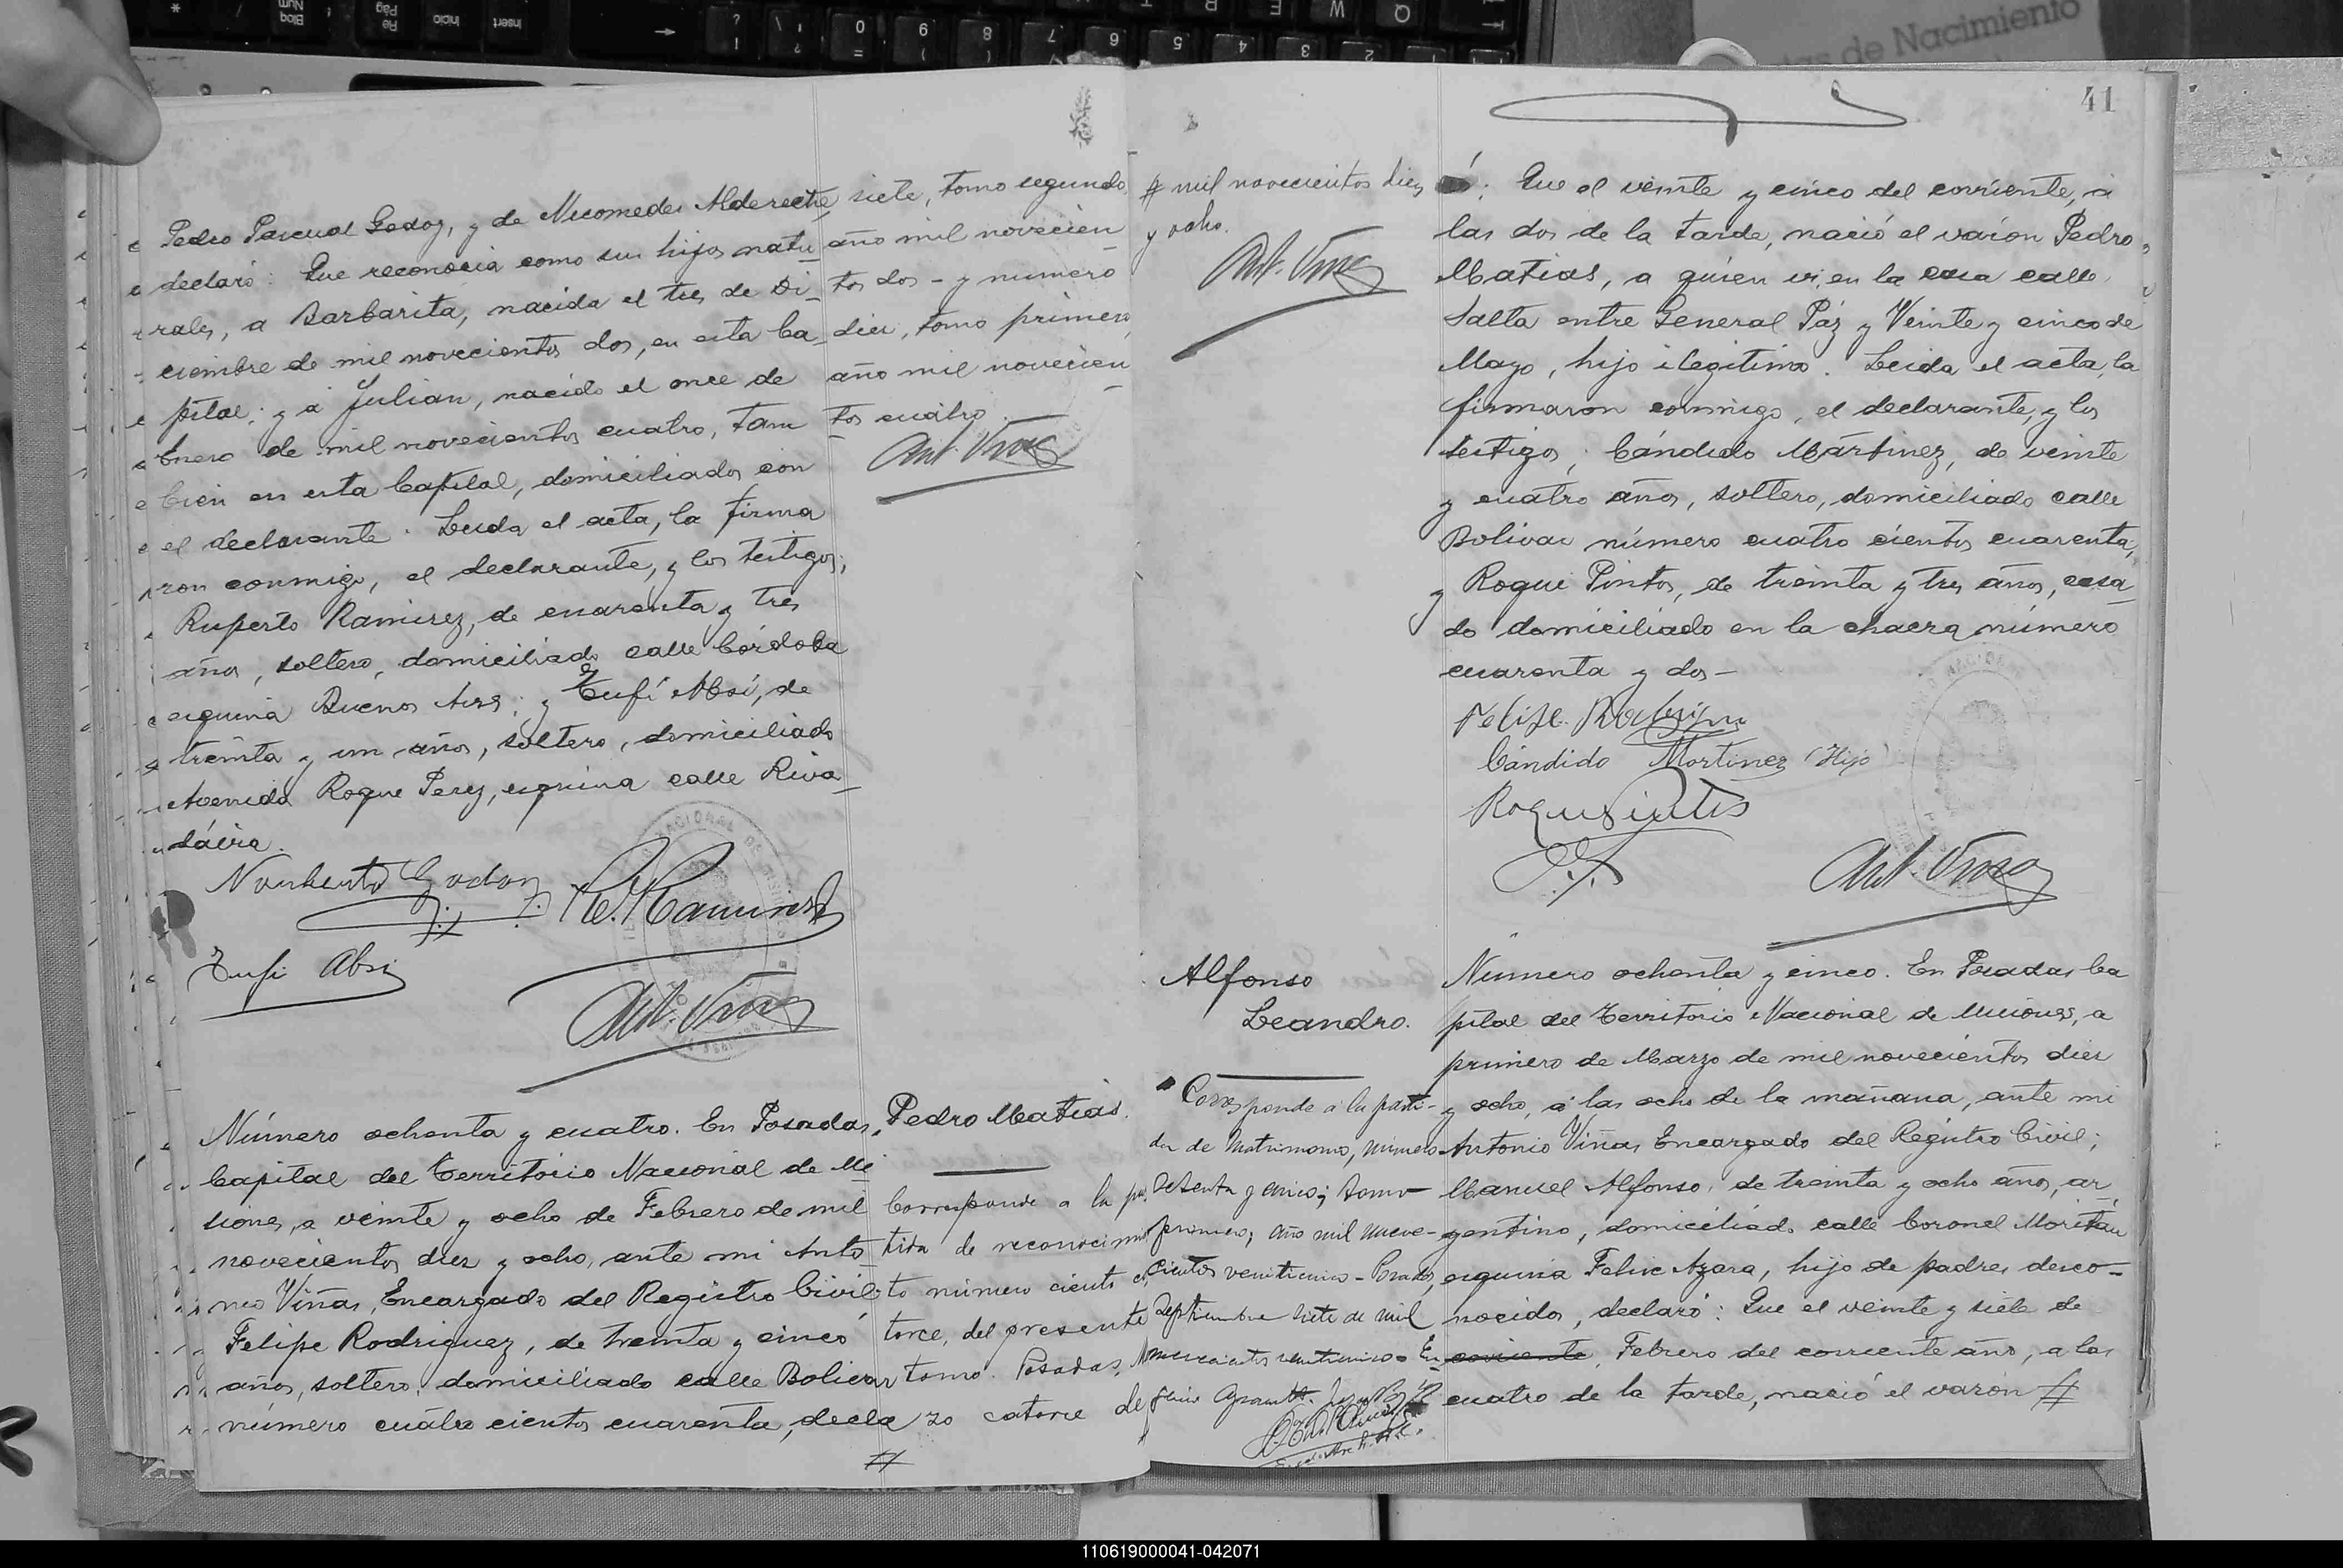 41
Pedro Pascual Godoy, y de Nicomedes Alderete
declaró: Que reconocia como sus hijos natu
rales, a Barbarita, nacida el tres de Di_
ciembre de mil novecientos dos, en esta Ca_
pital; y a Julian, nacido el once de
Enero de mil novecientos cuatro, tam
bien en esta Capital, domiciliados con
el declarante. Leida el acta, la firma
ron conmigo, el declarante, y los testigos;
Ruperto Ramirez, de cuarenta y tres
años, soltero, domiciliado calle Córdoba
esquina Buenos Aires; y Tufí Absi, de
treinta y un años, soltero, domiciliado
Avenida Roque Perez, esquina calle Riva_
dávia.
Norberto Godoy
R. Ramirez
Tufi Absi
Ant. Viñas
siete, tomo segundo,
año mil novecien_
tos dos - y numero
diez, tomo primero,
año mil novecien_
tos cuatro.
Ant. Viñas
Número ochenta y cuatro. En Posadas,
Capital del Territorio Nacional de Mi_
siones, a veinte y ocho de Febrero de mil
novecientos diez y ocho, ante mi Anto
nio Viñas, Encargado del Registro Civil
Felipe Rodriguez, de treinta y cinco
años, soltero, domiciliado calle Bolivar
número cuatro cientos cuarenta, decla
Pedro Matias.
Corresponde a la par
tida de reconocimien
to número ciento ca
torce, del presente
tomo. Posadas, Mar
zo catorce de
#
# mil novecientos diez
y ocho.
Ant. Viñas
ró: Que el veinte y cinco del corriente, a
las dos de la tarde, nació el varon Pedro
Matias, a quien vi en la casa calle
Salta entre General Paz y Veinte y cinco de
Mayo, hijo ilegitimo. Leida el acta, la
firmaron conmigo, el declarante, y los
testigos; Cándido Mártinez, de veinte
y cuatro años, soltero, domiciliado calle
Bolivar número cuatro cientos cuarenta;
y Roque Pintos, de treinta y tres años, casa_
do domiciliado en la chacra número
cuarenta y dos -
Felipe Rodriguez
Cándido Martinez (Hijo)
Roque Pintos
Ant. Viñas
Alfonso
Leandro.
Corresponde a la parti-
da de Matrimonio, número
setenta y cinco; tomo
primero; año mil nueve-
cientos veinticinco - Posadas,
Septiembre siete de mil
novecientos veinticinco - En
Número ochenta y cinco. En Posadas Ca
pital del Territorio Nacional de Misiones, a
primero de Marzo de mil novecientos diez
y ocho, a las ocho de la mañana, ante mi
Antonio Viñas Encargado del Registro Civil;
Manuel Alfonso, de treinta y ocho años, ar_
gentino, domiciliado calle Coronel Moritan
esquina Felix Azara, hijo de padres desco-
nocidos, declaró: Que el veinte y siete de
corriente, Febrero del corriente año, a las
cuatro de la tarde, nació el varon #
de Nacimiento
110619000041-042071